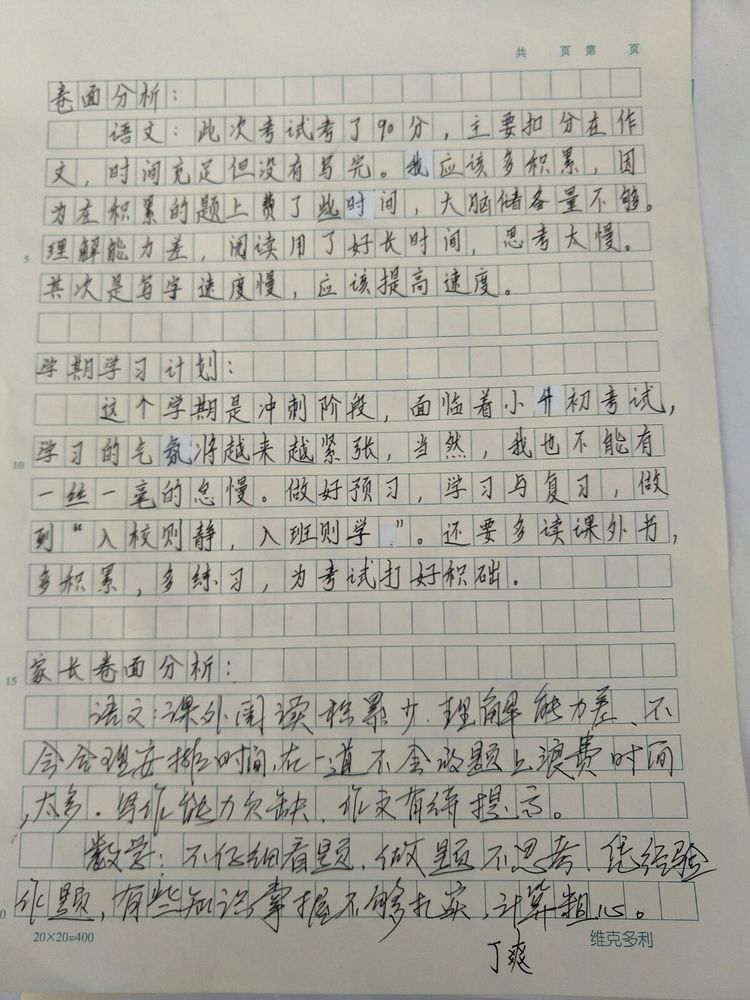 共 页 第 页
卷面分析：
语文：此次考试考了90分，主要扣分在作
文，时间充足但没有写完。我应该多积累，因
为在积累的题上费了些时间，大脑储备量不够。
5 理解能力差，阅读用了好长时间，思考太慢。
其次是写字速度慢，应该提高速度。
学期学习计划：
这个学期是冲刺阶段，面临着小升初考试，
10 学习的气氛将越来越紧张，当然，我也不能有
一丝一毫的怠慢。做好预习，学习与复习，做
到“入校则静，入班则学”。还要多读课外书，
多积累，多练习，为考试打好积础。
15 家长卷面分析：
语文：课外阅读积累少，理解能力差、不
会合理安排时间，在一道不会的题上浪费时间
太多。写作能力欠缺，作文有待提高。
数学：不仔细看题，做题不思考，凭经验
作题，有些知识掌握不够扎实，计算粗心。
20×20=400 维克多利
丁爽